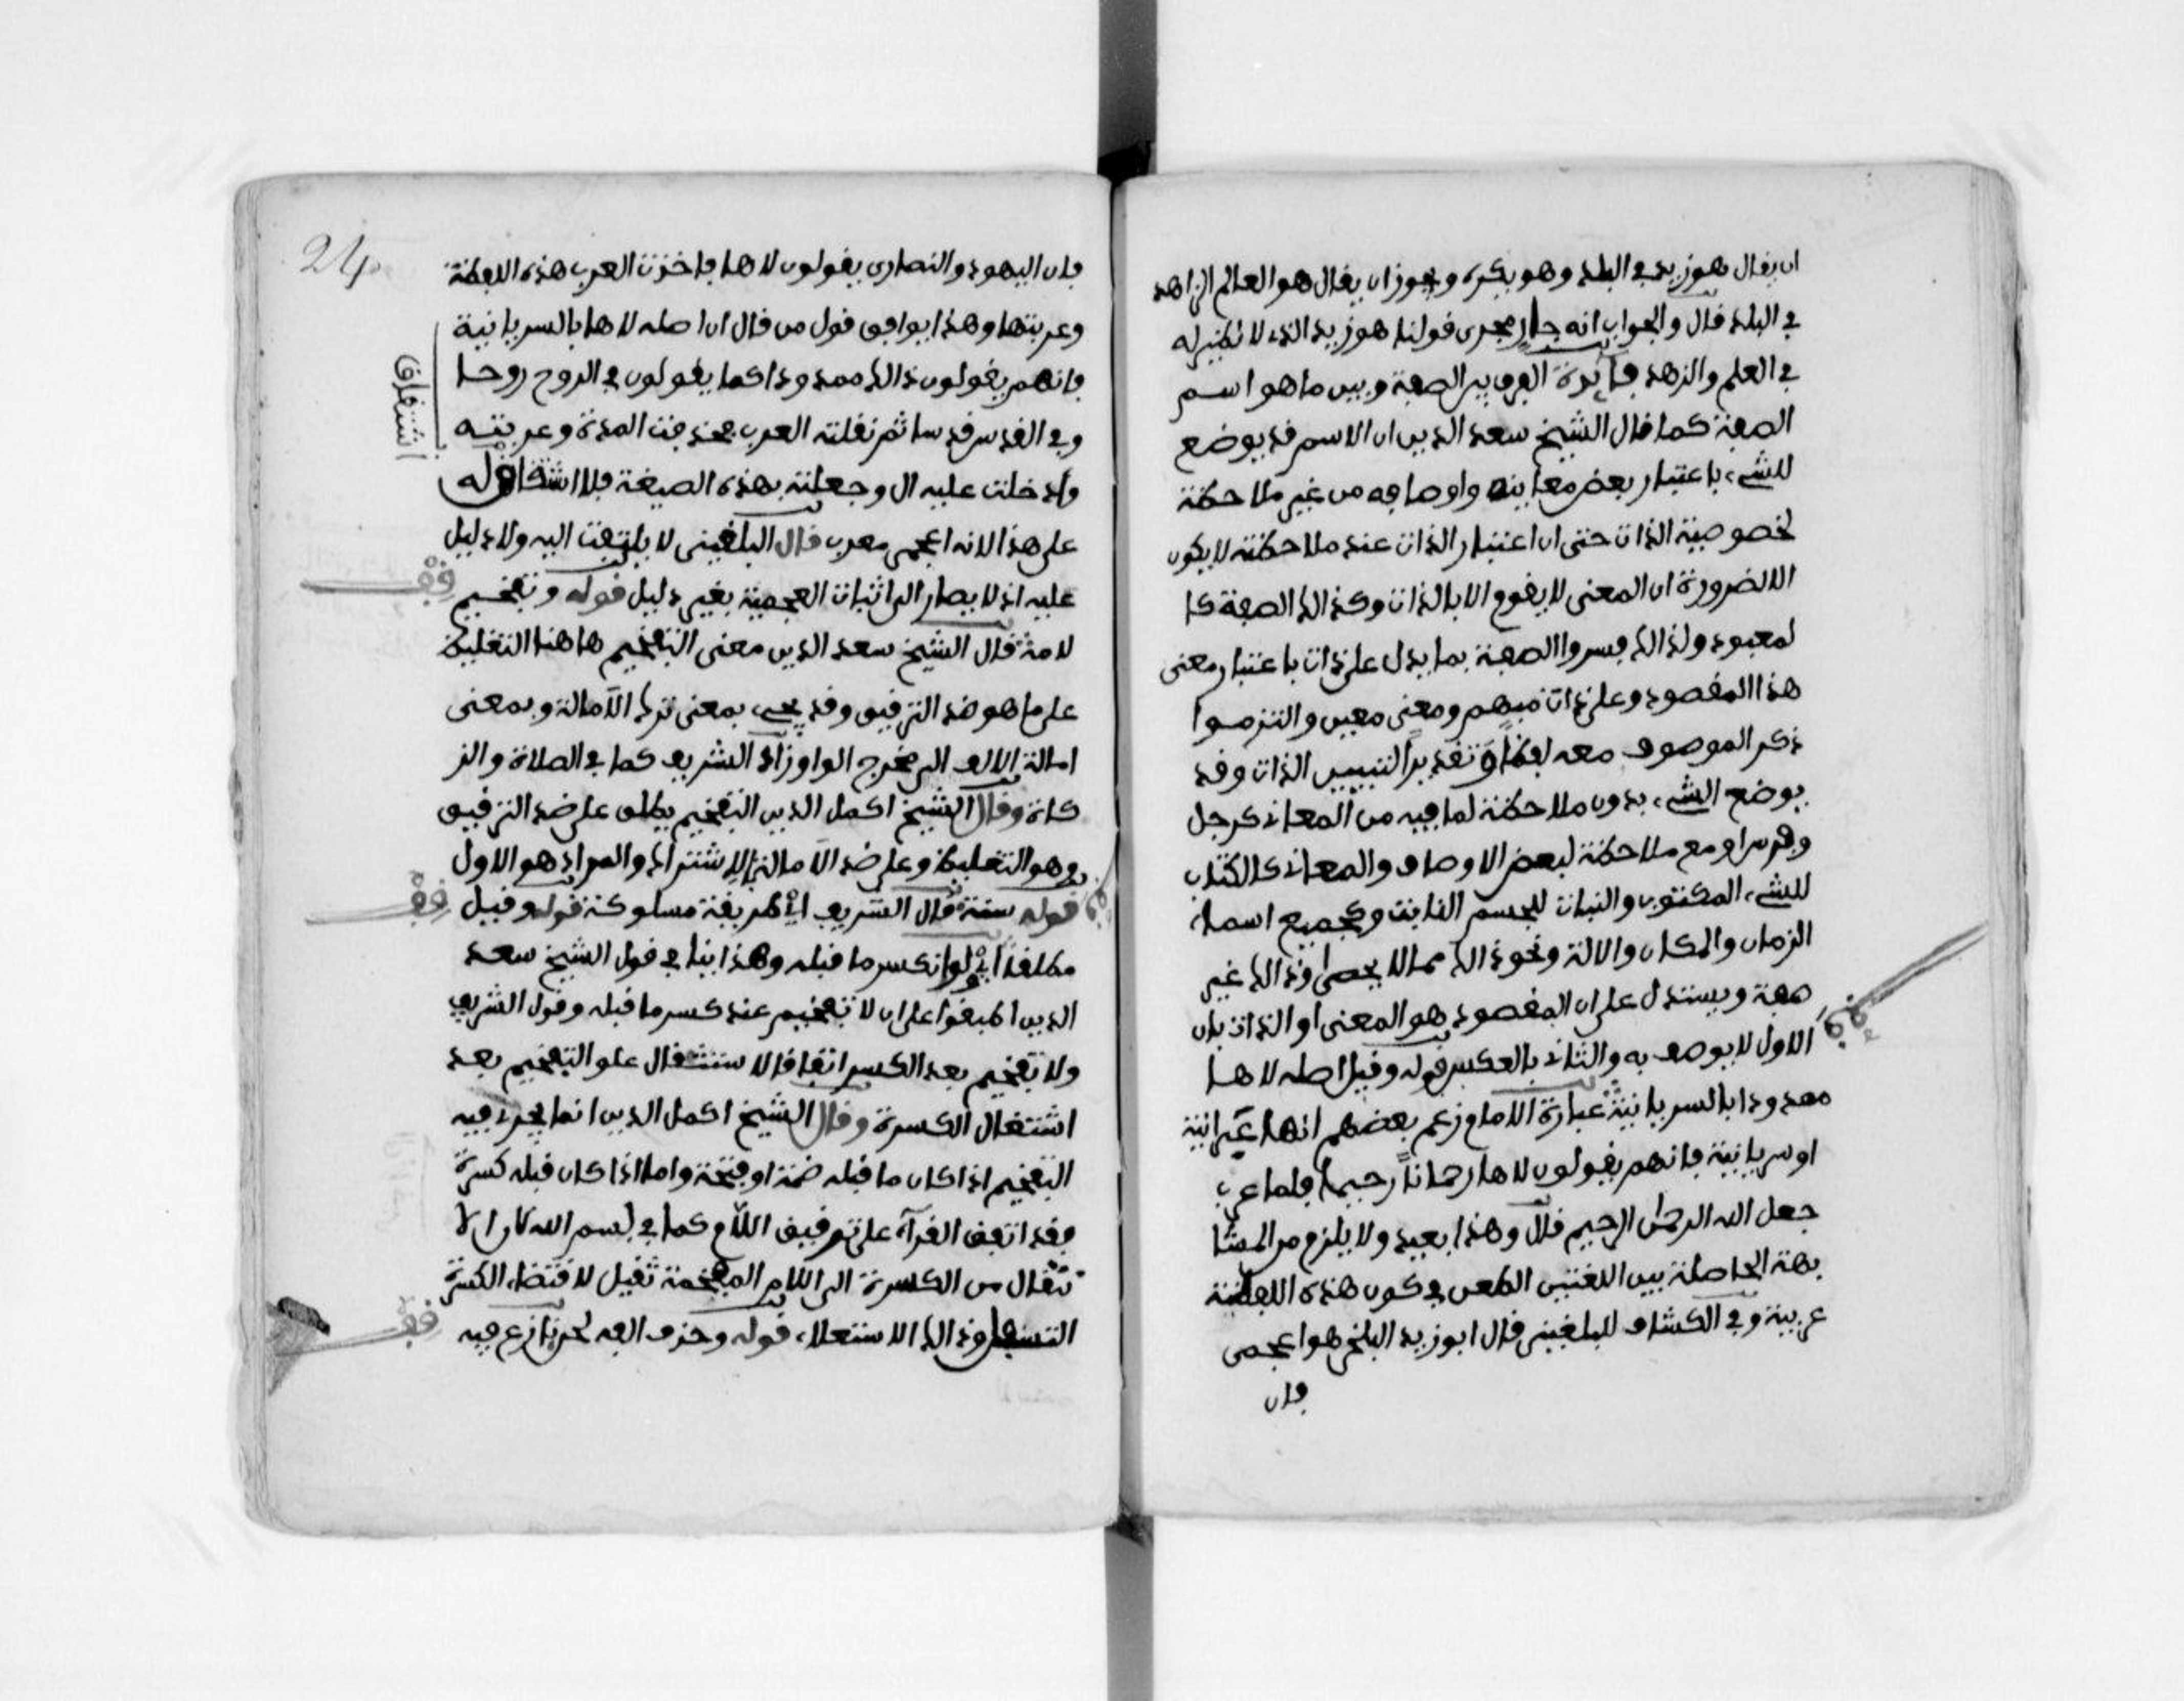 ان يقال هو زيد في البلد وهو بكرة ويجوز ان يقال هو العالم الزاهد
في البلد قال والجواب انه جار مجرى قولنا هو زيد الذى لا نظير له
في العلم والزهد فائدة الفرق بين الصفة وبين ما هو اسم
الصفة كما قال الشيخ سعد الدين ان الاسم قد يوضع
للشيء باعتبار بعض معانيه واوصافه من غير ملاحظة
لخصوصية الذات حتى ان اعتبار الذات عند ملاحظته لا يكون
الا لضرورة ان المعنى لا يقوم الا بالذات وكذلك الصفة كا
لمعبود ولذلك فسروا الصفة بما يدل على ذات باعتبار معنى
هذا المقصود وعلى ذات مبهم ومعنى معين والتزموا
ذكر الموصوف معه لفظا او تقديرا لتبيين الذات وقد
يوضع الشيء بدون ملاحظة لما فيه من المعاني كرجل
وفرس او مع ملاحظة لبعض الاوصاف والمعاني كالكتاب
للشيء المكتوب والنبات للجسم النابت وكجميع اسماء
الزمان والمكان والالة ونحو ذلك مما لا يحصى وذلك غير
صفة ويستدل على ان المقصود هو المعنى او الذات بان
الاول لا يوصف به والثاني بالعكس قوله وقيل اصله لاها
معدودا بالسريانية عبارة الامام زعم بعضهم انها عبرانية
او سريانية فانهم يقولون لاها رحمانا رحيما فلما عرب
جعل الله الرحمن الرحيم قال وهذا بعيد ولا يلزم من المشا
بهة الحاصلة بين اللغتين الطعن في كون هذه اللفظة
عربية وفي الكشاف للبلقيني قال ابو زيد البلخي هو اعجمى
فان
24
فان اليهود والنصارى يقولون لاها فاخذت العرب هذه اللفظة
وعربتها وهذا يوافق قول من قال ان اصله لاها بالسريانية
فانهم يقولون ذلك ممدودا كما يقولون في الروح روحا
وفي القدس قدسا ثم نقلته العرب فحذفت المدة وعربته
وادخلت عليه ال وجعلته بهذه الصيغة فلا اشتقاق له
اشتقاق
على هذا لانه اعجمي معرب قال البلقيني لا يلتفت اليه ولا دليل
عليه اذ لا يصار الى اثبات العجمية بغير دليل قوله وتفخيم
قف
لامه قال الشيخ سعد الدين معنى التفخيم هاهنا التغليظ
على ما هو ضد الترقيق وقد يجيء بمعنى ترك الامالة وبمعنى
امالة الالف الى مخرج الواو زاد الشريف كما في الصلاة والز
كاة وقال الشيخ اكمل الدين التفخيم يطلق على ضد الترقيق
وهو التغليظ وعلى ضد الامالة بالاشتراك والمراد هو الاول
قوله سنة قال الشريف اي طريقة مسلوكة قوله وقيل
قف
مطلقا اي ولو انكسر ما قبله وهذا ينافي قول الشيخ سعد
الدين اطبقوا على ان لا تفخيم عند كسر ما قبله وقول الشريف
ولا تفخيم بعد الكسر اتفاقا لاستثقال علو التفخيم بعد
استفال الكسرة وقال الشيخ اكمل الدين انما يجرى فيه
التفخيم اذا كان ما قبله ضمة او فتحة واما اذا كان قبله كسرة
فقد اتفق القرآء على ترقيق اللام كما في بسم الله لان الا
نتقال من الكسرة الى اللام المفخمة ثقيل لاقتضاء الكسرة
التسفل وذلك الاستعلاء قوله وحذف الفه لحن نازع فيه
قف